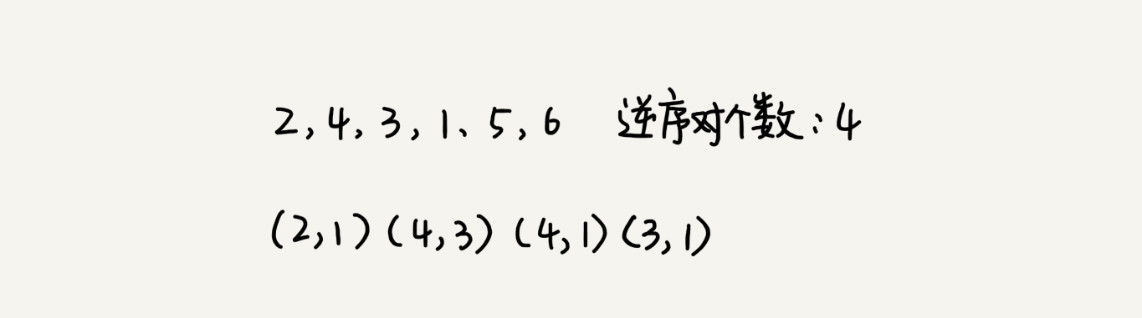 2, 4, 3, 1、5, 6 逆序对个数: 4
(2,1) (4,3) (4,1) (3,1)